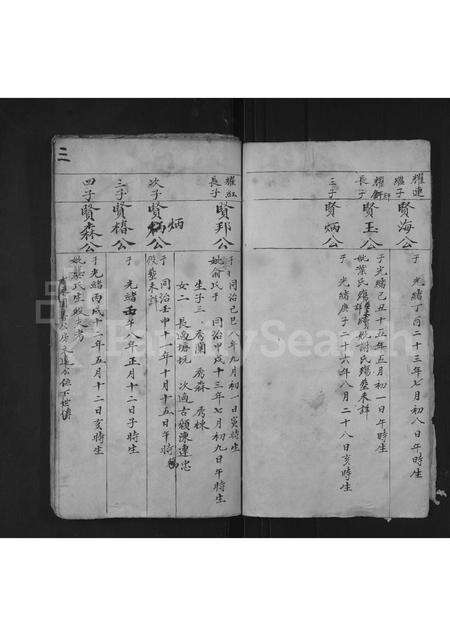 耀連
繼子賢海公
于 光緒丁酉二十三年七月初八日午時生
耀
長子賢玉公
于光緒己丑十五年五月初一日午時生
妣葉氏
三子賢炳公
于 光緒庚子二十六年八月二十八日亥時生
耀紅
長子賢邦公
于 同治己巳八年九月初一日寅時生
妣俞氏于 同治甲戌十三年七月初九日午時生
生子三 秀蘭 秀森 秀棟
女二 長適 坑 次適古額陳連忠
次子賢炳公
炳
于 同治壬申十一年十月十五日午時
三子賢椿公
于 光緒 午八年正月十二日子時生
四子賢森公
于光緒丙戌十二年五月十二日亥時生
三
FamilySearch